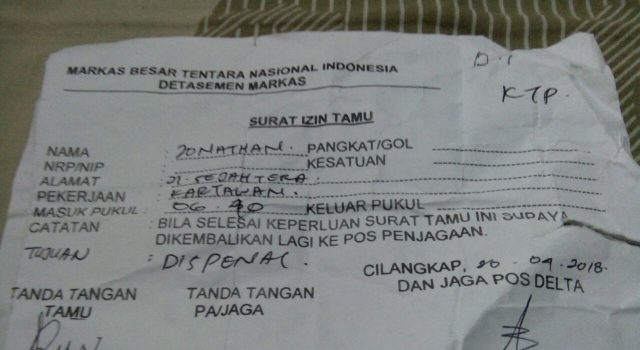 D.1
MARKAS BESAR TENTARA NASIONAL INDONESIA
DETASEMEN MARKAS
KTP.
SURAT IZIN TAMU
NAMA : JONATHAN. PANGKAT/GOL
NRP/NIP : KESATUAN
ALAMAT : Jl. SEJAHTERA
PEKERJAAN : KARYAWAN.
MASUK PUKUL : 06.40 KELUAR PUKUL
CATATAN : BILA SELESAI KEPERLUAN SURAT TAMU INI SUPAYA
DIKEMBALIKAN LAGI KE POS PENJAGAAN.
TUJUAN : DISPENAL.
CILANGKAP, 20 - 04 - 2018.
DAN JAGA POS DELTA
TANDA TANGAN TANDA TANGAN
TAMU PA/JAGA